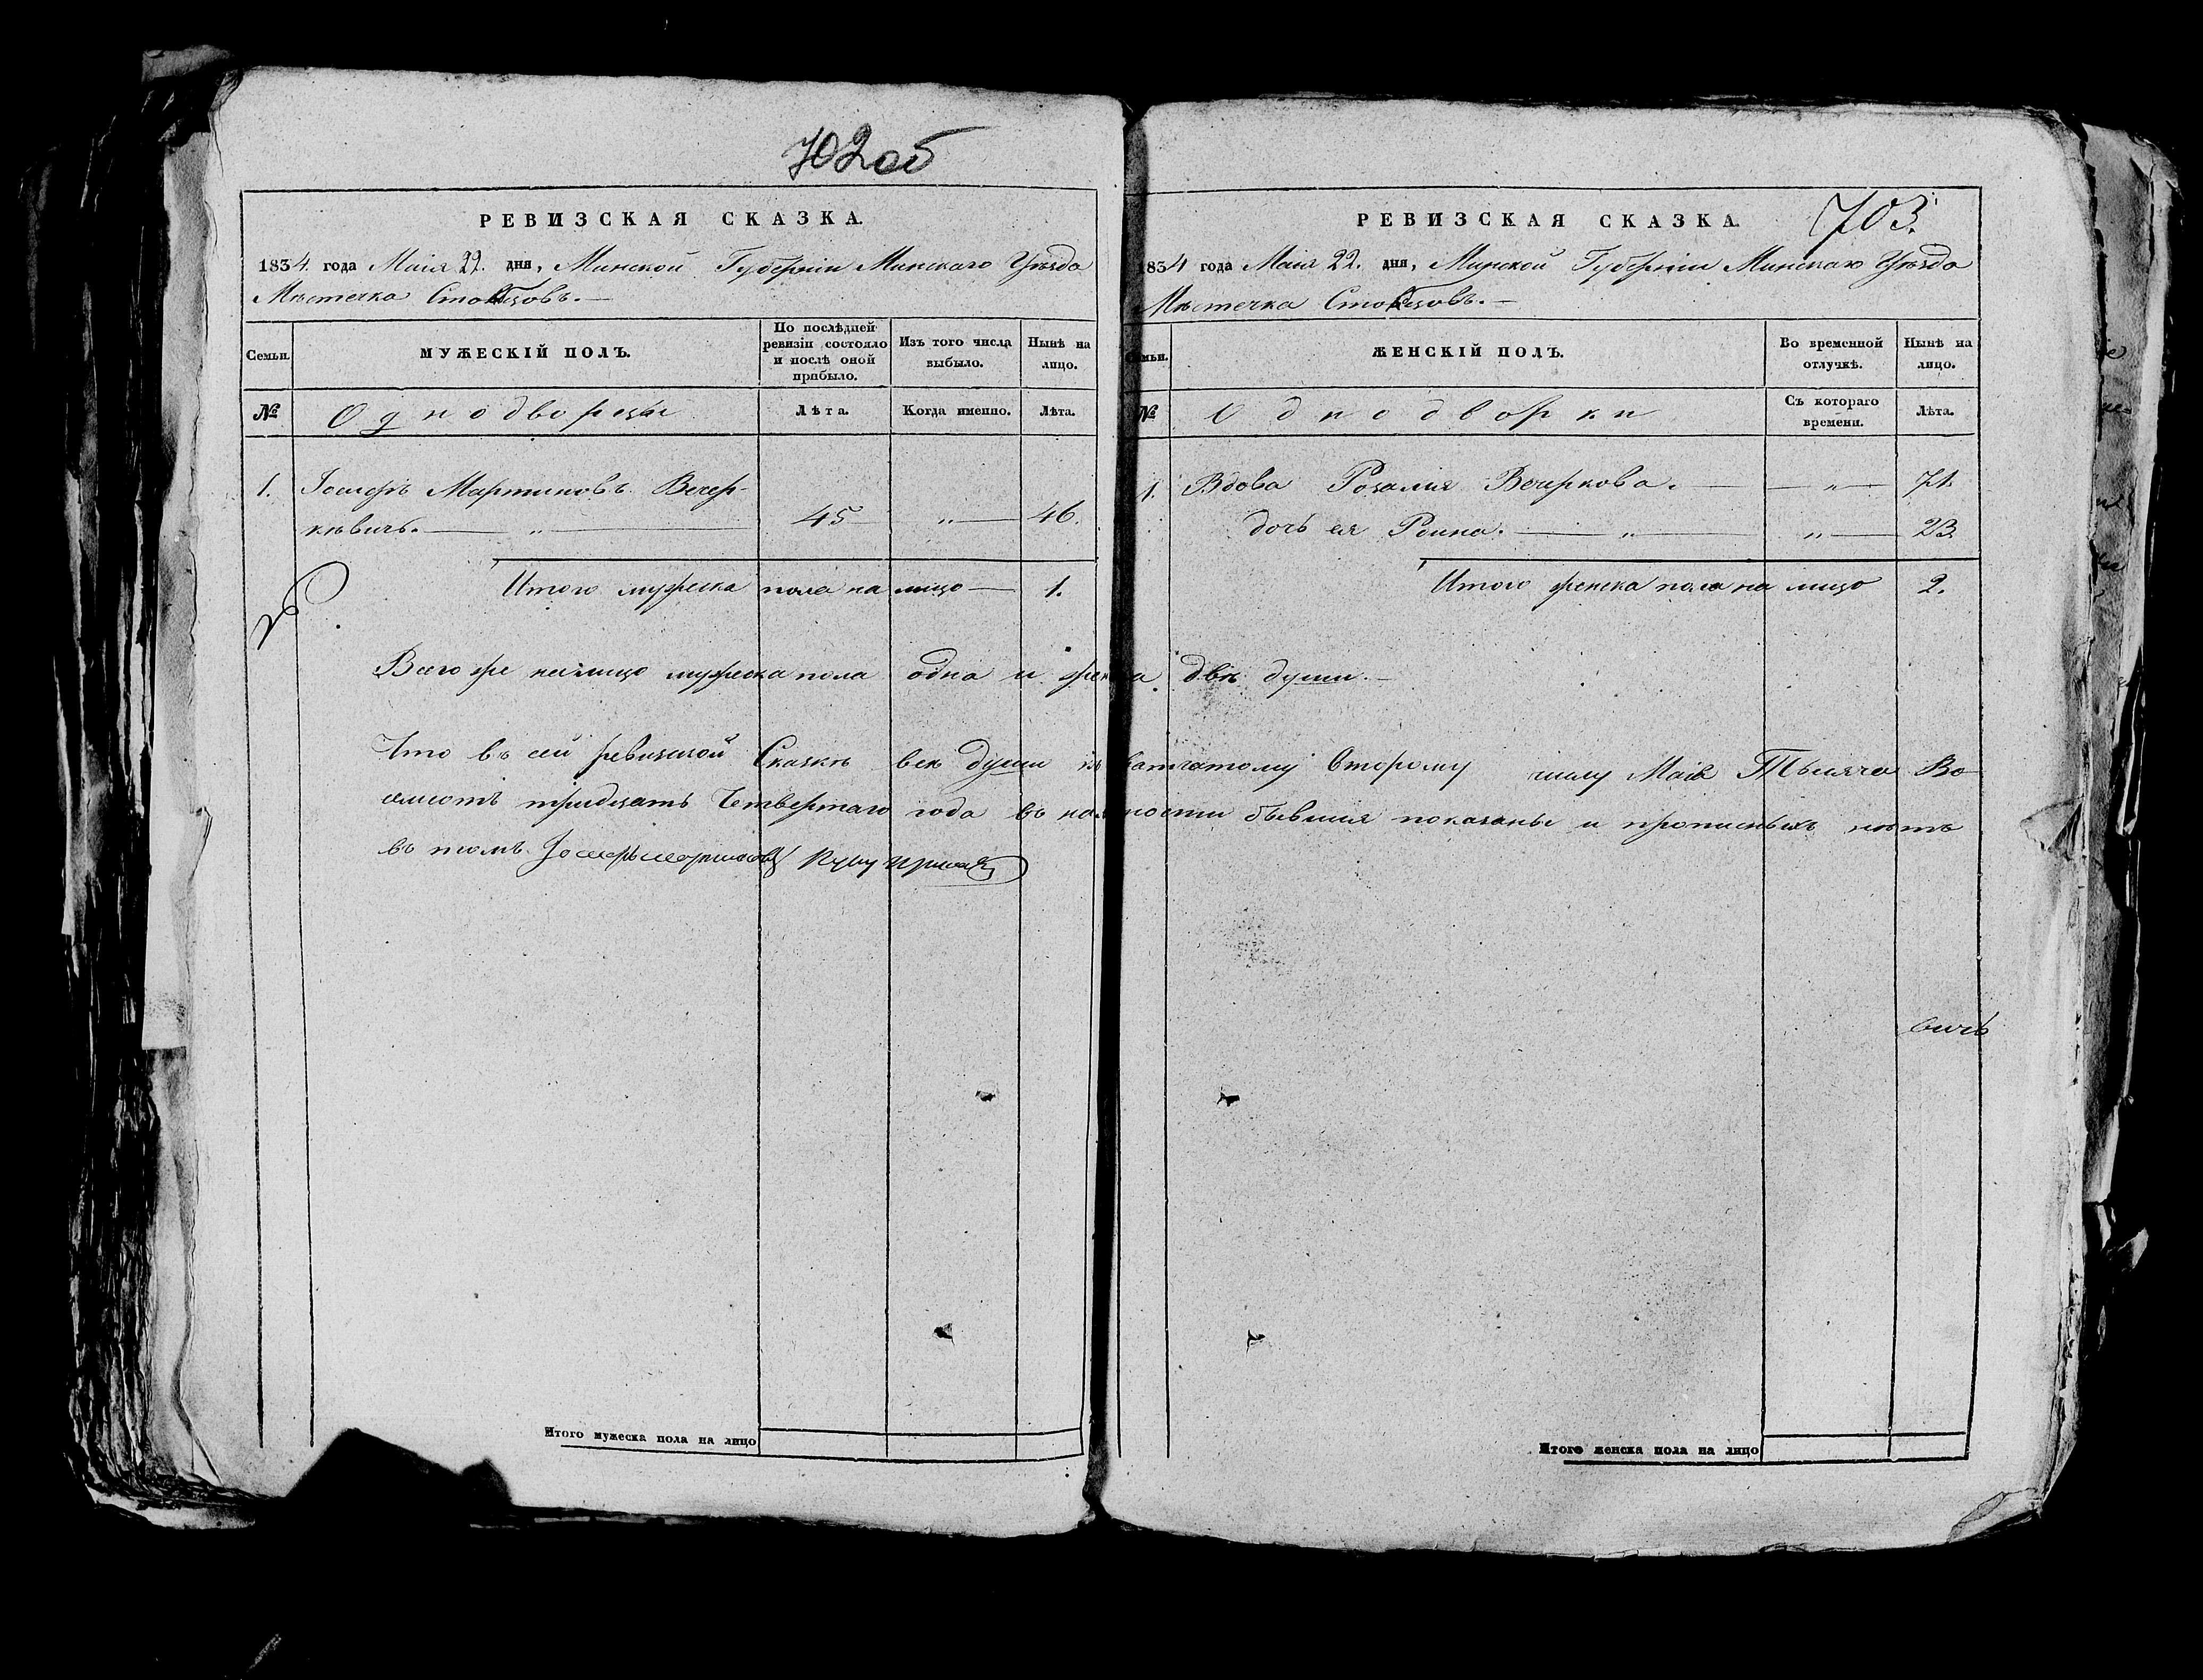 702об
РЕВИЗСКАЯ СКАЗКА.
1834. года Маія 22. дня, Минской Губерніи Минскаго Уѣзда
Мѣстечка Столбцовъ.
Семьи.
МУЖЕСКІЙ ПОЛЪ.
По послѣдней ревизіи состояло и послѣ оной прибыло.
Изъ того числа выбыло.
Нынѣ на лицо.
№
Однодворецъ
Лѣта.
Когда именно.
Лѣта.
1. Іосифъ Мартиновъ Вечер-
кѣвичъ. — " — 45 " — 46.
Итого мужеска пола на лицо — 1.
703.
РЕВИЗСКАЯ СКАЗКА.
1834 года Маія 22. дня, Минской Губерніи Минскаго Уѣзда
Мѣстечка Столбцовъ. —
Семьи.
ЖЕНСКІЙ ПОЛЪ.
Во временной отлучкѣ.
Нынѣ на лицо.
№
Однодворки
Съ котораго времени.
Лѣта.
1. Вдова Розалия Вечеркова. — " — 71.
дочь ея Роина. — " — " — 23.
Итого женска пола на лицо 2.
Всего же на лицо мужеска пола одна и женска двѣ души. —
Что въ сей ревизской Сказкѣ всѣ души къ Второму числу Маія Тысяча Во-
семсотъ тридцать Четвертаго года въ наличности бывшия показаны и прописныхъ нѣтъ
въ томъ Іосифъ руку
вичъ
Итого мужеска пола на лицо
Итого женска пола на лицо